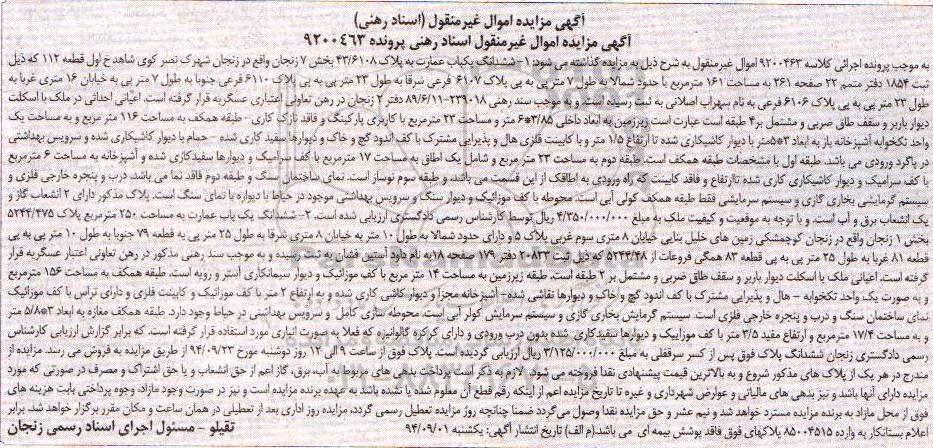 آگهی مزایده اموال غیرمنقول (اسناد رهنی)
آگهی مزایده اموال غیرمنقول اسناد رهنی پرونده ۹۲۰۰۴۶۳
به موجب پرونده اجرائی کلاسه ۹۲۰۰۴۶۳ اموال غیرمنقول به شرح ذیل به مزایده گذاشته می شود: ۱-ششدانگ یکباب عمارت به پلاک ۴۳/۶۱۰۸ بخش ۷ زنجان واقع در زنجان شهرک نصر کوی شاهد خ اول قطعه ۱۱۲ که ذیل
ثبت ۱۸۵۴ دفتر متمم ۲۲ صفحه ۲۶۱ به مساحت ۱۶۱ مترمربع با حدود: شمالا به طول ۷ متر پی به پی پلاک ۶۱۰۷ فرعی شرقا به طول ۲۳ متر پی به پی پلاک ۶۱۱۰ فرعی جنوبا به طول ۷ متر پی به خیابان ۱۶ متری غربا به
طول ۲۳ متر پی به پی پلاک ۶۱۰۶ فرعی به نام سهراب اصلانی به ثبت رسیده است. و به موجب سند رهنی ۲۳۹۰۱۸-۸۹/۶/۱۱ دفتر ۲ زنجان در رهن تعاونی اعتباری عسگریه قرار گرفته است. اعیانی احداثی در ملک با اسکلت
دیوار باربر و سقف طاق ضربی و مشتمل بر ۴ طبقه است عبارت است زیرزمین به ابعاد داخلی ۳/۸۵*۶ متر و مساحت ۲۳ مترمربع با کاربری پارکینگ و فاقد نازک کاری - طبقه همکف به مساحت ۱۱۶ متر مربع و به مساحت یک
واحد تکخوابه آشپزخانه باز به ابعاد ۳*۵متر با دیوار کاشیکاری شده تا ارتفاع ۱/۵ متر و با کابینت فلزی هال و پذیرایی مشترک با کف اندود گچ و خاک و دیوارها سفید کاری شده - حمام با دیوار کاشیکاری شده و سرویس بهداشتی
در پاگرد ورودی می باشد. طبقه اول با مشخصات طبقه همکف است. طبقه دوم به مساحت ۲۳ متر مربع و شامل یک اطاق به مساحت ۱۷ مترمربع با کف سرامیک و دیوارها سفیدکاری شده و آشپزخانه به مساحت ۶ مترمربع
با کف سرامیک و دیوار کاشیکاری کاری شده تا ارتفاع و فاقد کابینت که راه ورودی به اطاقک از این قسمت می باشد. و طبقه سوم نوساز است. نمای ساختمان سنگ و طبقه دوم فاقد نما می باشد. درب و پنجره خارجی فلزی و
سیستم گرمایشی بخاری گازی و سیستم سرمایشی فقط طبقه همکف کولر آبی است. محوطه با کف موزائیک و دیوار سنگ و سرویس بهداشتی موجود در حیاط با دیواره با نمای سنگ است. پلاک مذکور دارای ۲ انشعاب گاز و
یک انشعاب برق و آب است. و با توجه به موقعیت و کیفیت ملک به مبلغ ۴/۳۵۰/۰۰۰/۰۰۰ ریال توسط کارشناس رسمی دادگستری ارزیابی شده است. ۲- ششدانگ یک باب عمارت به مساحت ۲۵۰ مترمربع پلاک ۵۲۴۴/۴۷۵
بخش ۱ زنجان واقع در زنجان کوچمشکی زمین های خلیل بنایی خیابان ۸ متری سوم غربی پلاک ۵ و دارای حدود شمالا به طول ۱۰ متر به خیابان ۸ متری شرقا به طول ۲۵ متر پی به قطعه ۷۹ جنوبا به طول ۱۰ متر پی به پی
قطعه ۸۱ غربا به طول ۲۵ متر پی به پی قطعه ۸۳ همگی فروعات از ۵۲۴۴/۴۸ که ذیل ثبت ۲۰۸۳۳ دفتر ۱۷۹ صفحه ۱۸ به نام داود آستین فشان به ثبت رسیده و به موجب سند رهنی مذکور در رهن تعاونی اعتبار عسگریه قرار
گرفته است. اعیانی ملک با اسکلت دیوار باربر و سقف طاق ضربی و مشتمل بر ۲ طبقه است. طبقه زیرزمین به مساحت ۱۴ متر مربع با کف موزائیک و دیوار سیمانکاری آستر و رویه است. طبقه همکف به مساحت ۱۵۶ مترمربع
و به صورت یک واحد تکخوابه - هال و پذیرایی مشترک با کف اندود گچ و خاک و دیوارها نقاشی شده- آشپزخانه مجزا و دیوار کاشی کاری شده و به ارتفاع ۲ متر با کف موزائیک و کابینت فلزی و دارای تراس با کف موزائیک
نمای ساختمان سنگ و درب و پنجره خارجی فلزی است. سیستم گرمایش بخاری گازی و سیستم سرمایش کولر آبی است. محوطه سازی کامل و سرویس بهداشتی در حیاط وجود دارد. طبقه همکف مغازه به ابعاد ۳*۵/۸ متر
و به مساحت ۱۷/۴ مترمربع و ارتفاع مفید ۳/۵ متر با کف موزاییک و دیوارها سفیدکاری شده بدون درب ورودی و دارای کرکره گالوانیزه که فعلا به صورت انباری مورد استفاده قرار گرفته است. که برابر گزارش ارزیابی کارشناس
رسمی دادگستری زنجان ششدانگ پلاک فوق پس از کسر سرقفلی به مبلغ ۳/۱۲۵/۰۰۰/۰۰۰ ریال ارزیابی گردیده است. پلاک فوق از ساعت ۹ الی ۱۲ روز دوشنبه مورخ ۹۴/۰۹/۲۳ از طریق مزایده به فروش می رسد. مزایده از
مندرج در هر یک از پلاک های مذکور شروع و به بالاترین قیمت پیشنهادی نقدا فروخته می شود. لازم به ذکر است پرداخت بدهی های مربوط به آب، برق، گاز اعم از حق انشعاب و یا حق اشتراک و مصرف در صورتی که مورد
مزایده دارای آنها باشد و نیز بدهی های مالیاتی و عوارض شهرداری و غیره تا تاریخ مزایده اعم از اینکه رقم قطعی آن معلوم شده یا نشده باشد به عهده برنده مزایده است و نیز در صورت وجود مازاد، وجوه پرداختی بابت هزینه های
فوق از محل مازاد به برنده مزایده مسترد خواهد شد و نیم عشر و حق مزایده نقدا وصول می گردد ضمنا چنانچه روز مزایده تعطیل رسمی گردد، مزایده روز اداری بعد از تعطیلی در همان ساعت و مکان مقرر برگزار خواهد شد. برابر
اعلام بستانکار به وارده ۸۵۰۰۴۵۱۵ پلاکهای فوق فاقد پوشش بیمه ای می باشد.(م الف) تاریخ انتشار آگهی: یکشنبه ۹۴/۰۹/۰۱
تقیلو - مسئول اجرای اسناد رسمی زنجان